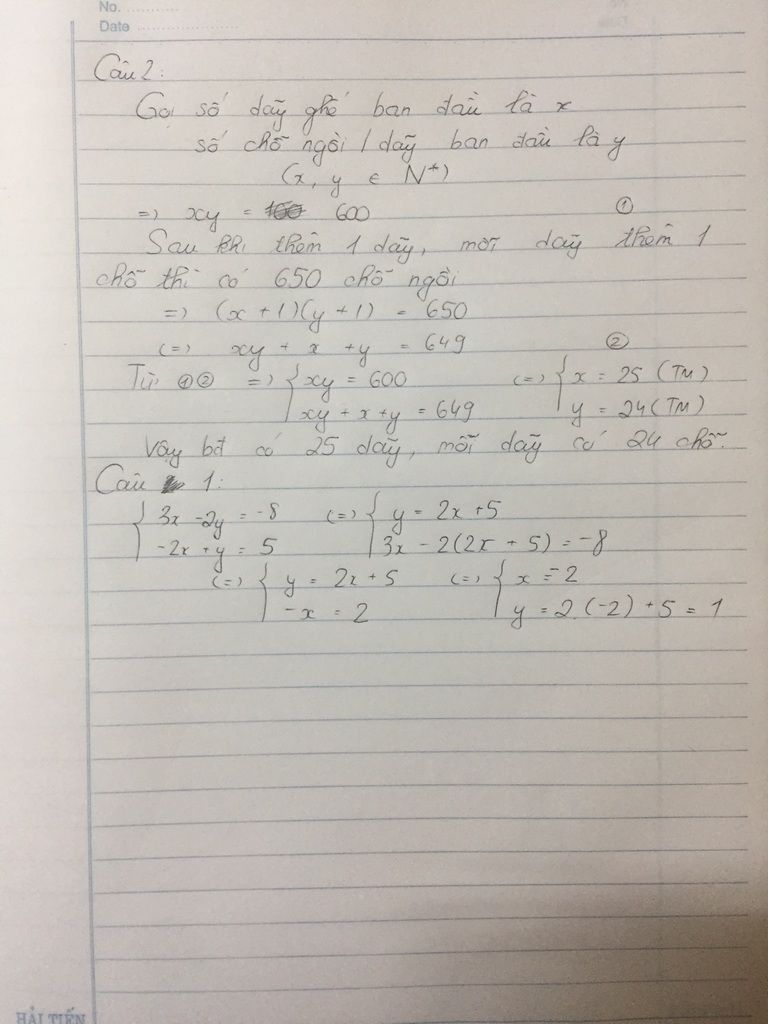 No. ............
Date .......................
Câu 2:
Gọi số dãy ghế ban đầu là x
số chỗ ngồi / dãy ban đầu là y
(x, y ∈ N*)
=> xy = 600 ①
Sau khi thêm 1 dãy, mỗi dãy thêm 1
chỗ thì có 650 chỗ ngồi
=> (x + 1)(y + 1) = 650
<=> xy + x + y = 649 ②
Từ ①② => { xy = 600 <=> { x = 25 (TM)
xy + x + y = 649 y = 24 (TM)
Vậy bđ có 25 dãy, mỗi dãy có 24 chỗ.
Câu 1:
{ 3x - 2y = -8 <=> { y = 2x + 5
-2x + y = 5 3x - 2(2x + 5) = -8
<=> { y = 2x + 5 <=> { x = -2
-x = 2 y = 2.(-2) + 5 = 1
HẢI TIẾN